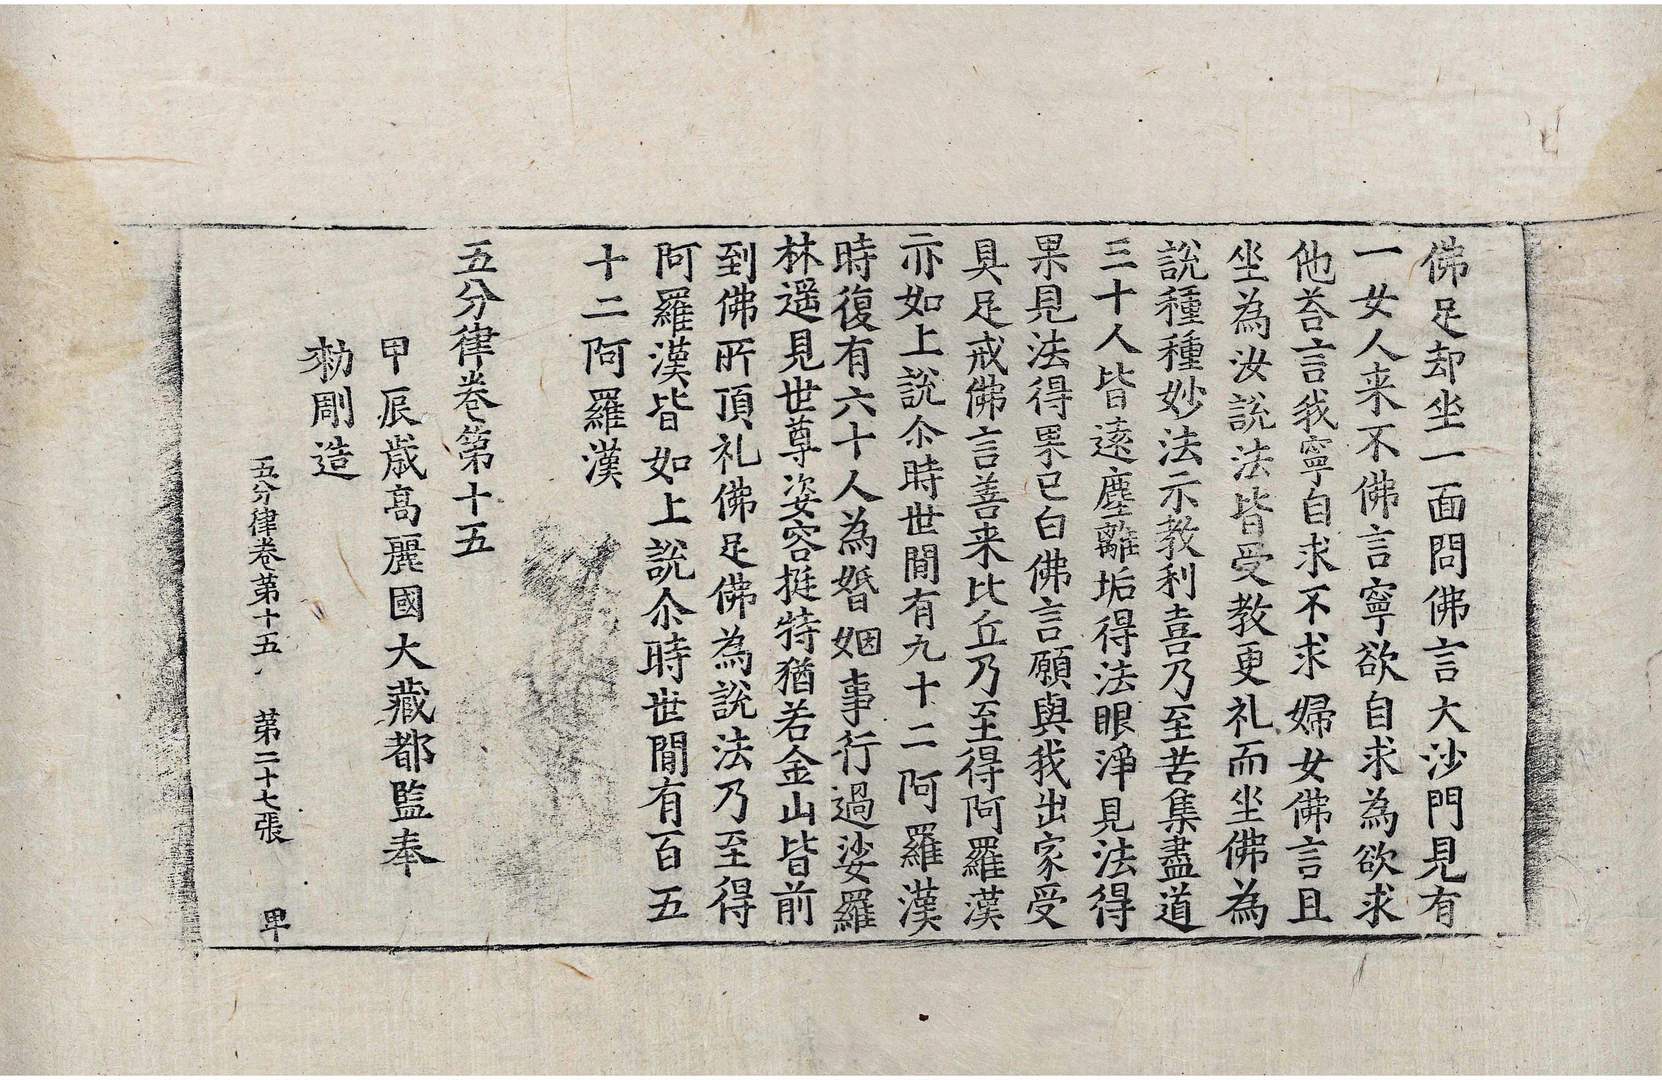 佛足却坐一面問佛言大沙門見有
一女人来不佛言寧欲自求為欲求
他荅言我寧自求不求婦女佛言且
坐為汝說法皆受教更礼而坐佛為
說種種妙法示教利喜乃至苦集盡道
三十人皆遠塵離垢得法眼淨見法得
果見法得果已白佛言願與我出家受
具足戒佛言善来比丘乃至得阿羅漢
亦如上說尒時世閒有九十二阿羅漢
時復有六十人為婚姻事行過娑羅
林遥見世尊姿容挺特猶若金山皆前
到佛所頂礼佛足佛為說法乃至得
阿羅漢皆如上說尒時世閒有百五
十二阿羅漢
五分律卷第十五
甲辰歳高麗國大藏都監奉
勑彫造
五分律卷第十五 第二十七張 甲